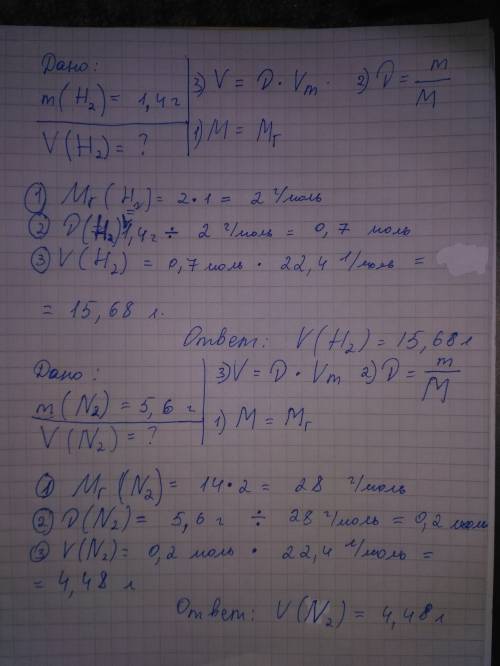 Дано:
m(H₂) = 1,4 г
V(H₂) = ?
3) V = D · Vm
2) D = m/M
1) M = Mr
① Mr(H₂) = 2·1 = 2 г/моль
② D(H₂) = 1,4 г ÷ 2 г/моль = 0,7 моль
③ V(H₂) = 0,7 моль · 22,4 л/моль =
= 15,68 л.
Ответ: V(H₂) = 15,68 л
Дано:
m(N₂) = 5,6 г
V(N₂) = ?
3) V = D · Vm
2) D = m/M
1) M = Mr
① Mr(N₂) = 14·2 = 28 г/моль
② D(N₂) = 5,6 г ÷ 28 г/моль = 0,2 моль
③ V(N₂) = 0,2 моль · 22,4 л/моль =
= 4,48 л
Ответ: V(N₂) = 4,48 л